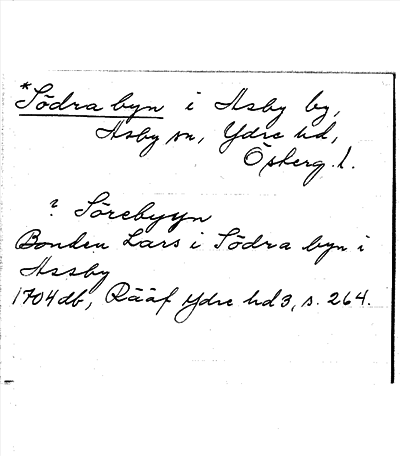 *Södra byn i Asby by,
Asby sn, Ydre hd,
Österg. l.
? Sörebyyn
Bonden Lars i Södra byn i
Assby
1704 db, Rääf Ydre hd 3, s. 264.